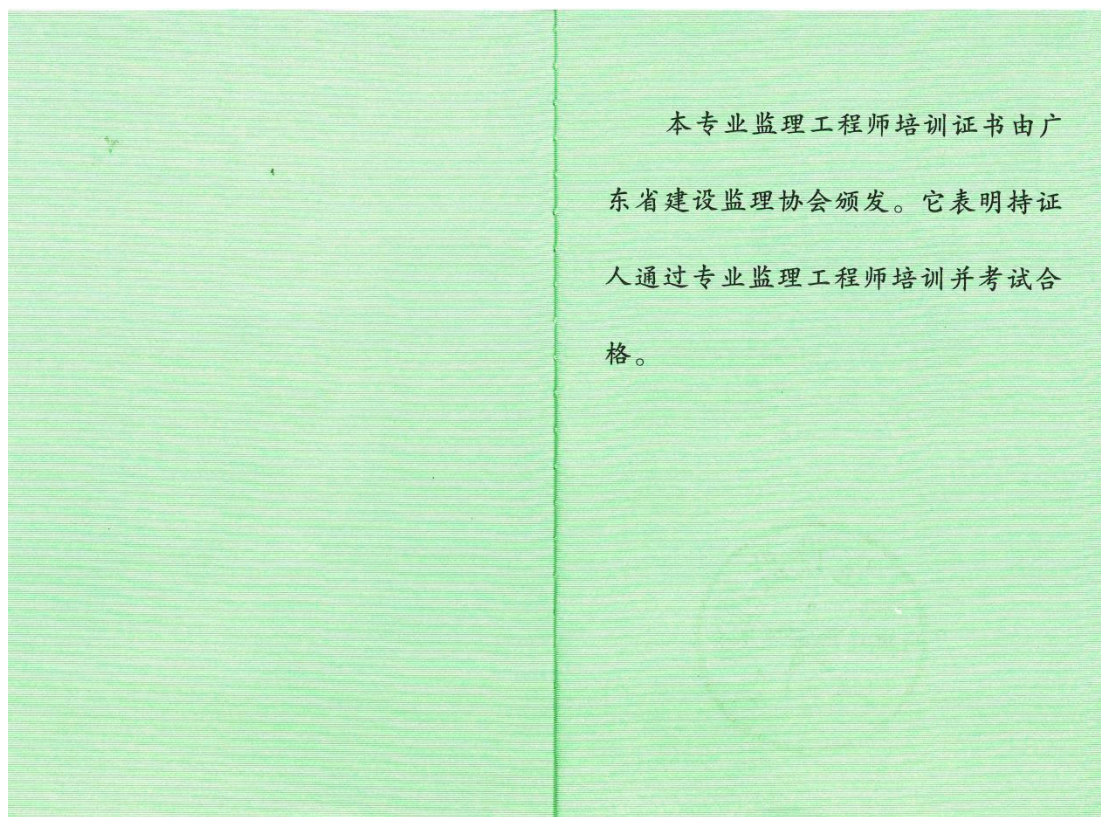 本专业监理工程师培训证书由广
东省建设监理协会颁发。它表明持证
人通过专业监理工程师培训并考试合
格。